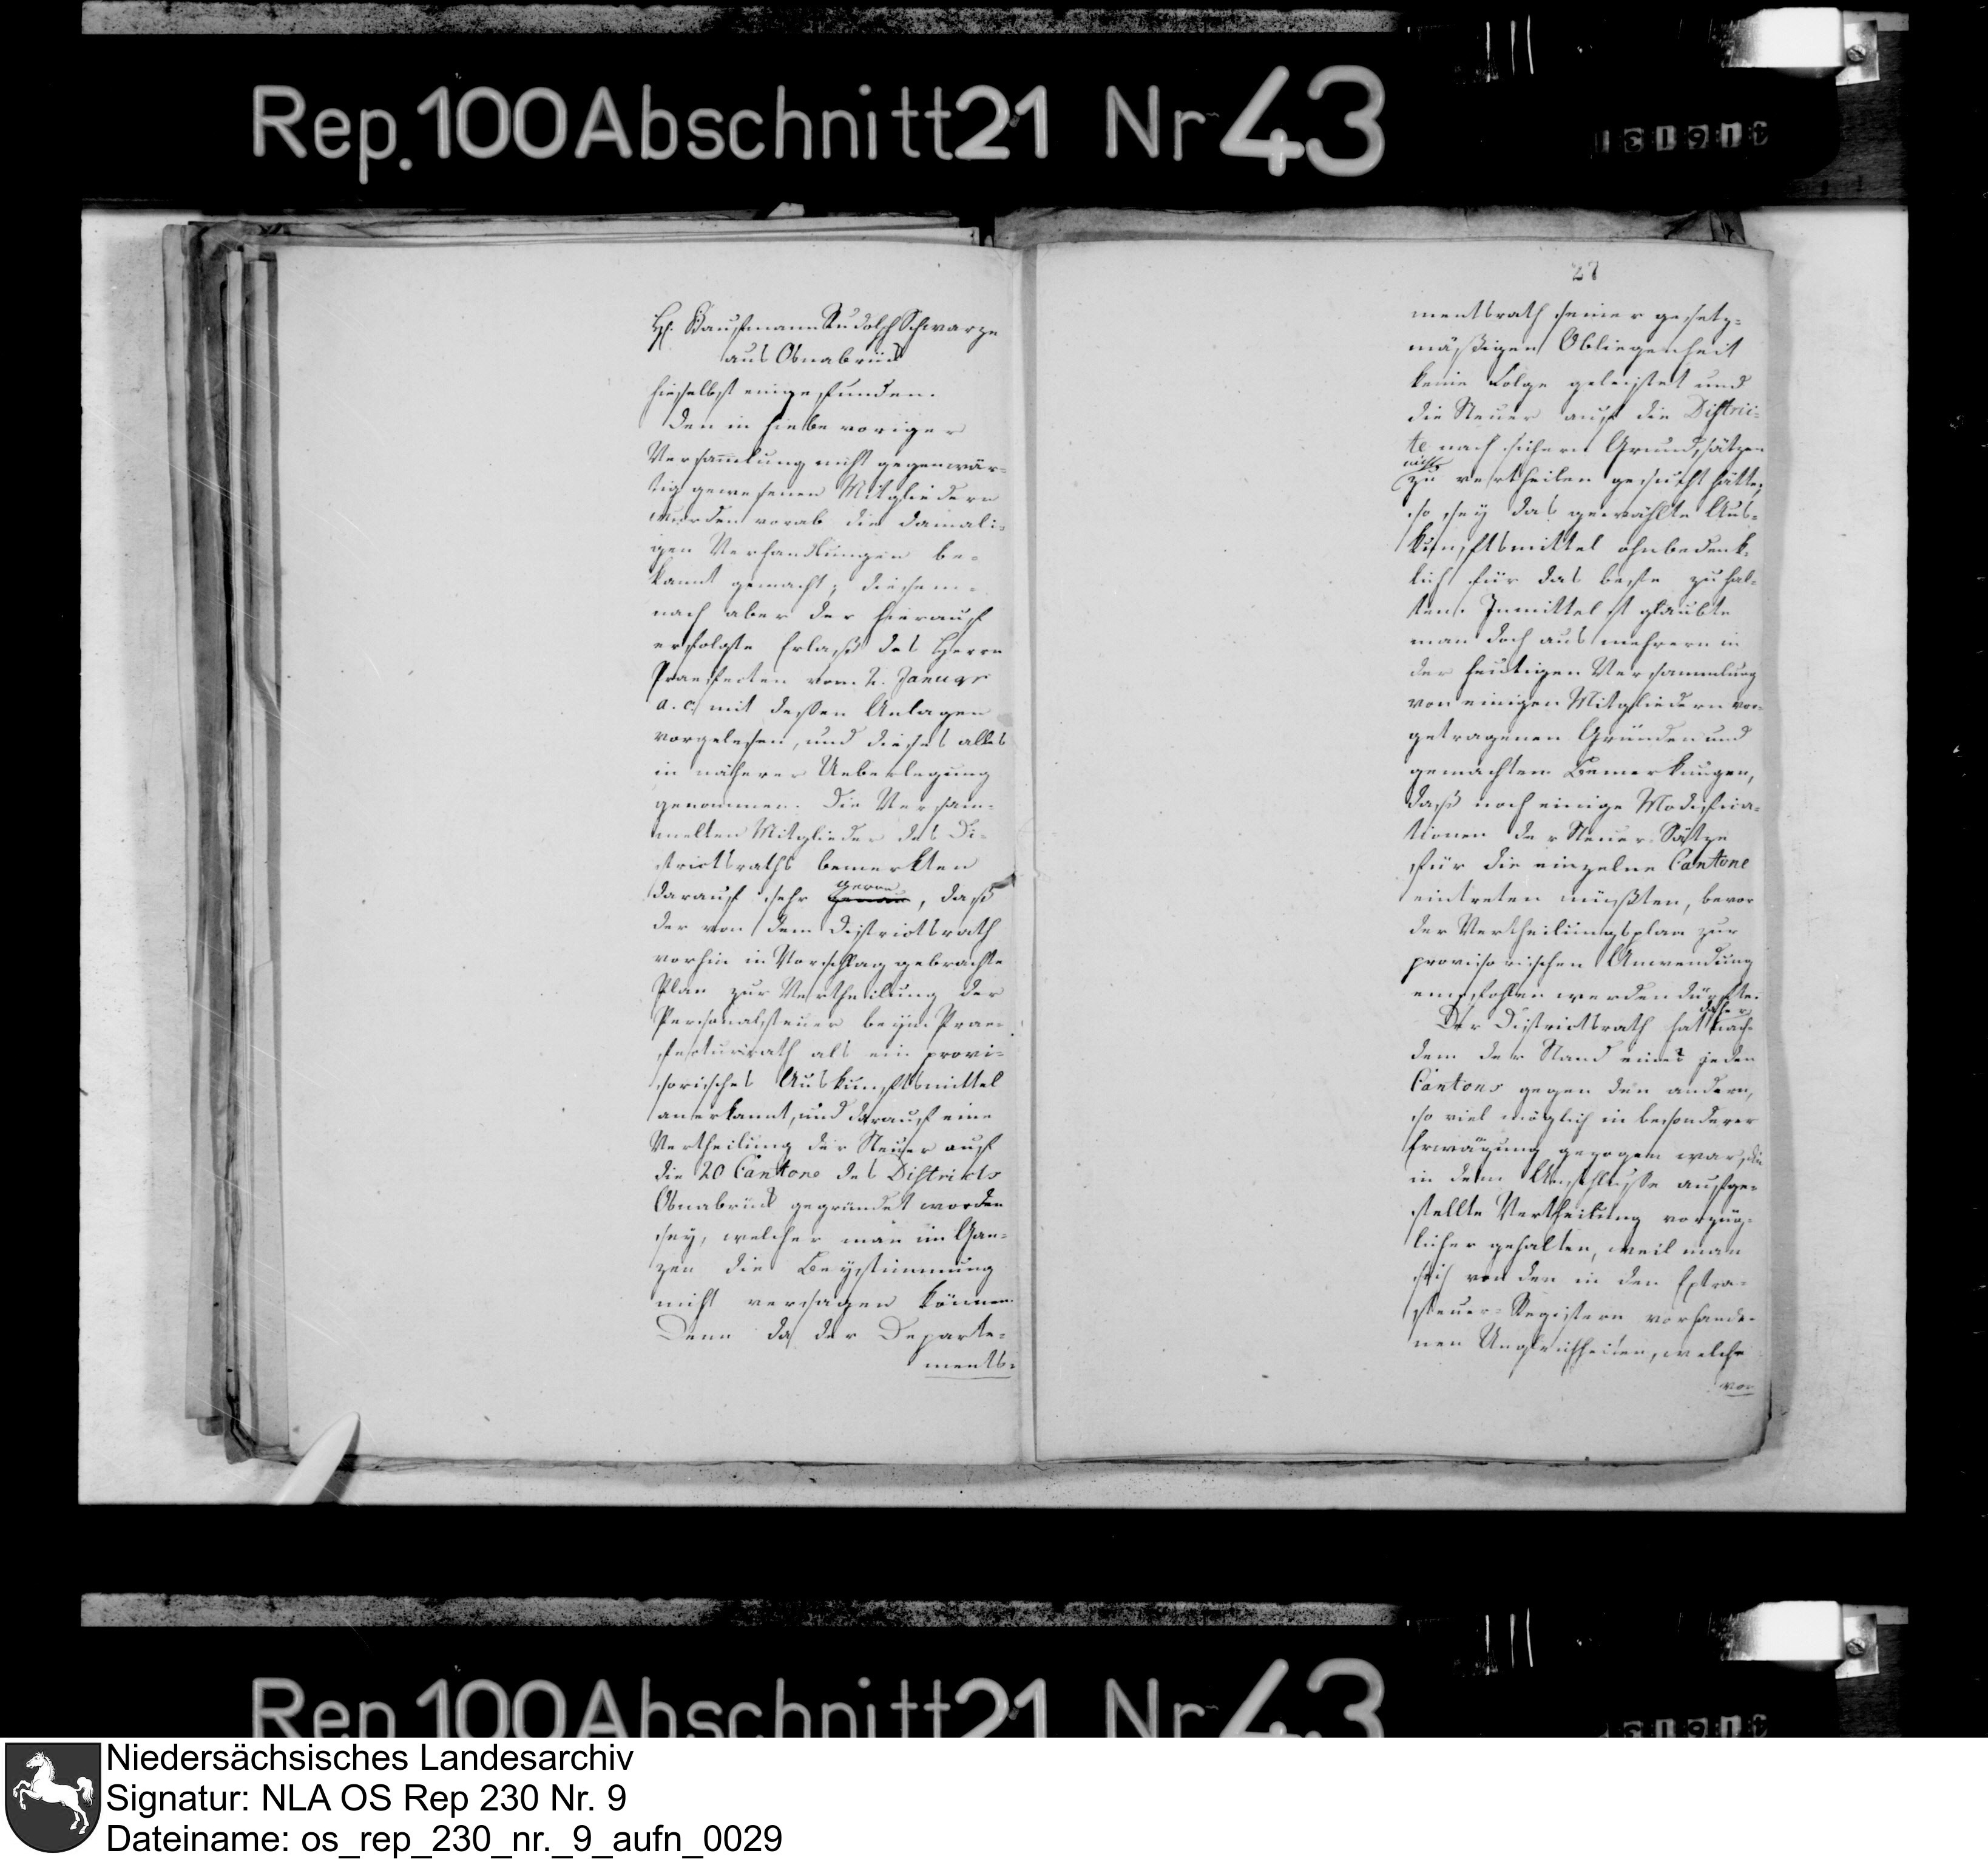 Rep. 100 Abschnitt 21 Nr 43
H. Kaufmann Rudolph Schwarze
aus Osnabrück
hieselbst eingefunden.
Den in hiebevoriger
Versam̅lung nicht gegenwär-
tig gewesenen Mitgliedern
wurden vorab die damali-
gen Verhandlungen be-
kannt gemacht; diesem-
nach aber der hierauf
erfolgte Erlaß des Herrn
Praefecten vom 2. Januar
a. c. mit deßen Anlagen
vorgelesen, und dieses alles
in näherer Ueberlegung
genommen. Die Versam-
melten Mitglieder des Di-
strictsraths bemerkten
gerne
darauf sehr genau, daß
der von dem Districtsrath
vorhin in Vorschlag gebrachte
Plan zur Vertheilung der
Personalsteuer beym Prae-
fecturrath als ein provi-
sorisches Auskunftsmittel
anerkannt, und darauf eine
Vertheilung der Steuer auf
die 20 Cantone des Districts
Osnabrück gegründet worden
sey, welcher man im Gan-
zen die Beystimmung
nicht versagen könne.
Denn da der Departe-
ments-
28
mentsrath seiner gesetz-
mäßigen Obliegenheit
keine Folge geleistet und
die Steuer auf die Distric-
te nach sichern Grundsätzen
nicht
zu vertheilen gesucht hätte;
so sey das gewählte Aus-
kunftsmittel ohnbedenk-
lich für das beste zu hal-
ten. Inmittelst glaubte
man doch aus mehrern in
der heutigen Versammlung
von einigen Mitgliedern vor-
getragenen Gründen und
gemachten Bemerkungen,
daß noch einige Modifica-
tionen der Steuer-Sätze
für die einzelne Cantone
eintreten müßten, bevor
der Vertheilungsplan zur
provisorischen Anwendung
empfohlen werden dürfte.
daher
Der Districtsrath hat nach-
dem der Stand eines jeden
Cantons gegen den andern,
so viel möglich in besonderer
Erwägung gezogen war, die
in dem Anschlusse aufge-
stellte Vertheilung vorzüg-
licher gehalten, weil man
sich von den in den Extra-
steuer-Registern vorhande-
nen Ungleichheiten, welche
von
Rep. 100 Abschnitt 21 Nr 43
Niedersächsisches Landesarchiv
Signatur: NLA OS Rep 230 Nr. 9
Dateiname: os_rep_230_nr._9_aufn_0029